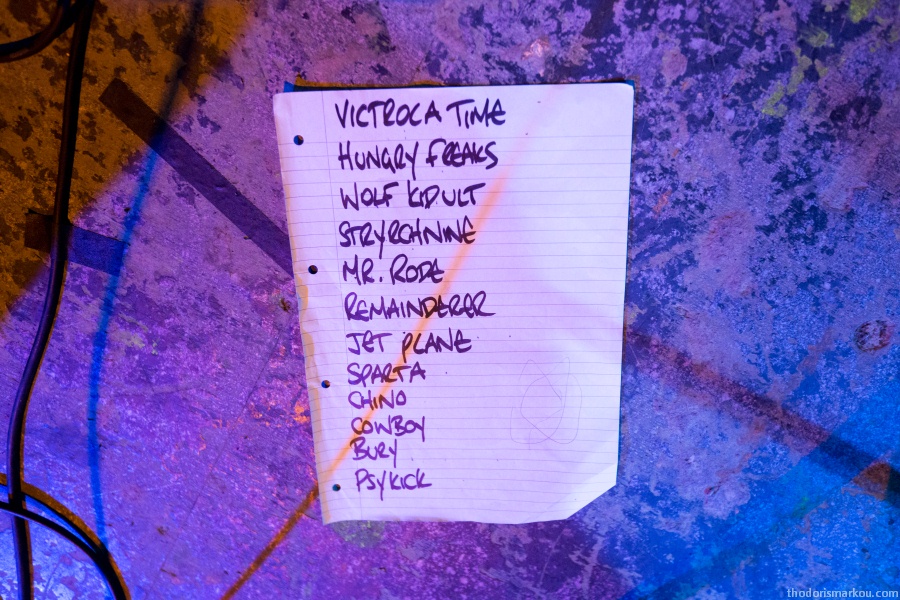 VICTROCA TIME
HUNGRY FREAKS
WOLF KIDULT
STRYRCHNINE
MR. RODE
REMAINDERER
JET PLANE
SPARTA
CHINO
COWBOY
BURY
PSYKICK
thodorismarkou.com